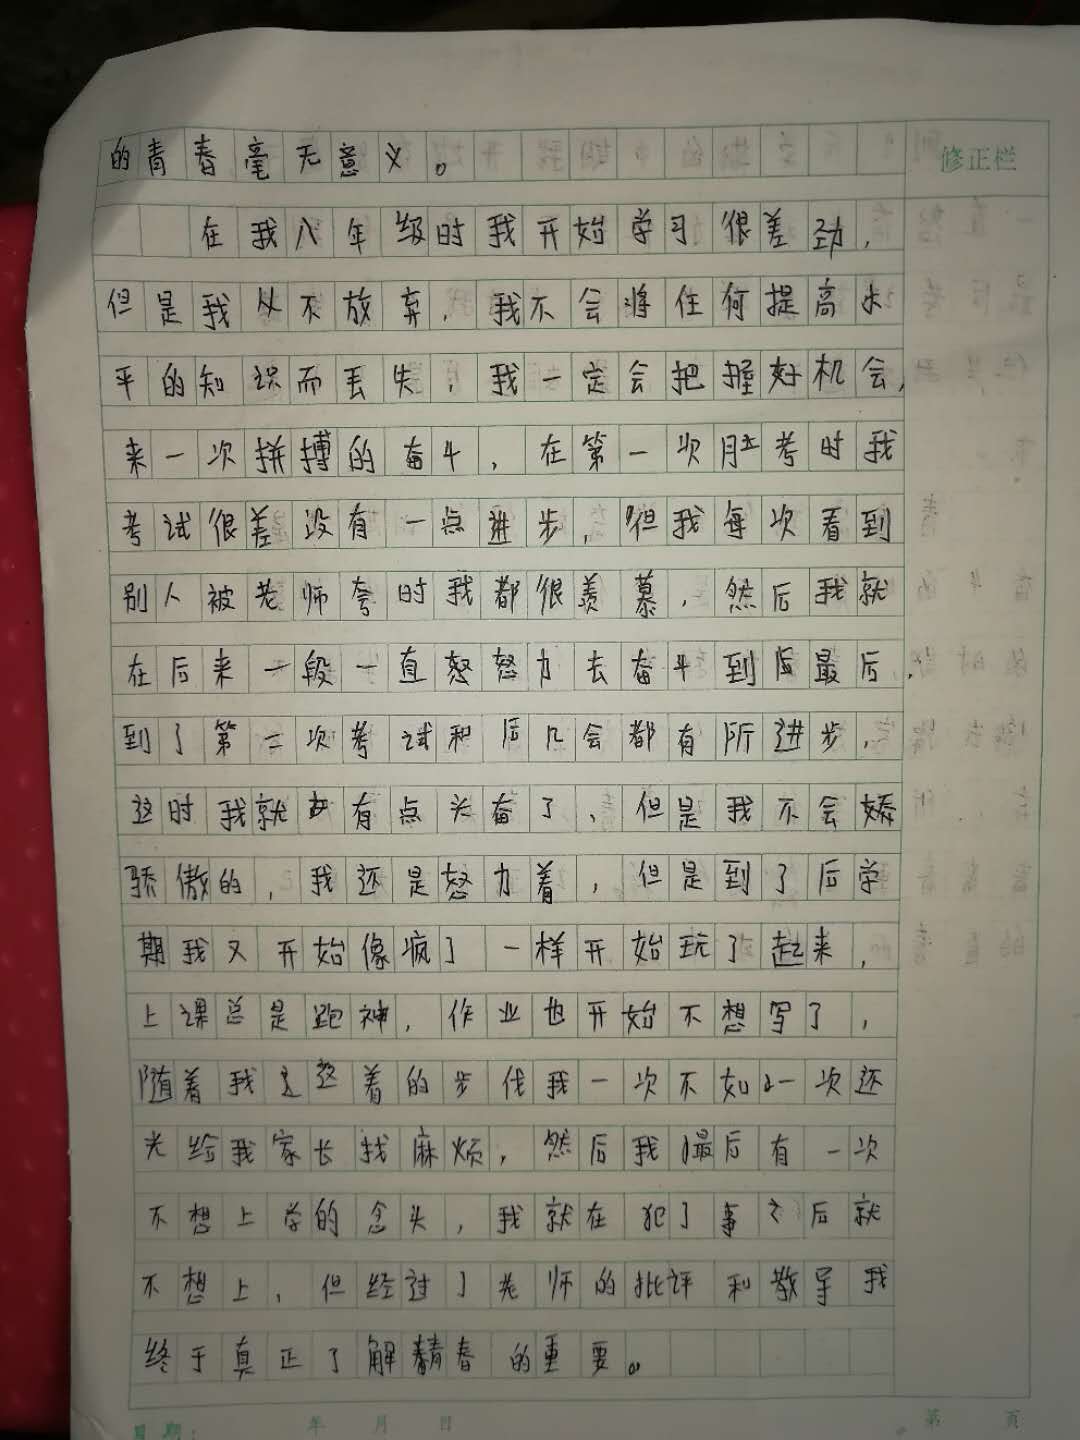 的青春毫无意义。
修正栏
在我八年级时我开始学习很差劲，
但是我从不放弃，我不会将任何提高水
平的知识而丢失，我一定会把握好机会，
来一次拼搏的奋斗，在第一次月考时我
考试很差没有一点进步，但我每次看到
别人被老师夸时我都很羡慕，然后我就
在后来一段一直怒怒力去奋斗到最后，
到了第二次考试和后几会都有所进步，
这时我就有点头奋了，但是我不会
骄傲的，我还是怒力着，但是到了后学
期我又开始像疯了一样开始玩了起来，
上课总是跑神，作业也开始不想写了，
随着我这着的步伐我一次不如一次还
光给我家长找麻烦，然后我最后有一次
不想上学的念头，我就在犯了事之后就
不想上，但经过了老师的批评和教导我
终于真正了解青春的重要。
日期： 年 月 日 第 页